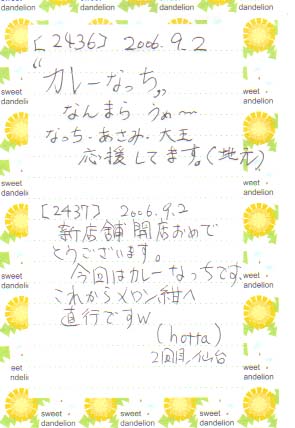 [2436] 2006.9.2
“カレーなっち”
なんまら うめ〜
なっち・あさみ・大王
応援してます。(地元)
[2437] 2006.9.2
新店舗開店おめで
とうございます。
今回はカレーなっちです。
これからメロン紺へ
直行ですw
(hotta)
2回目/仙台
sweet dandelion